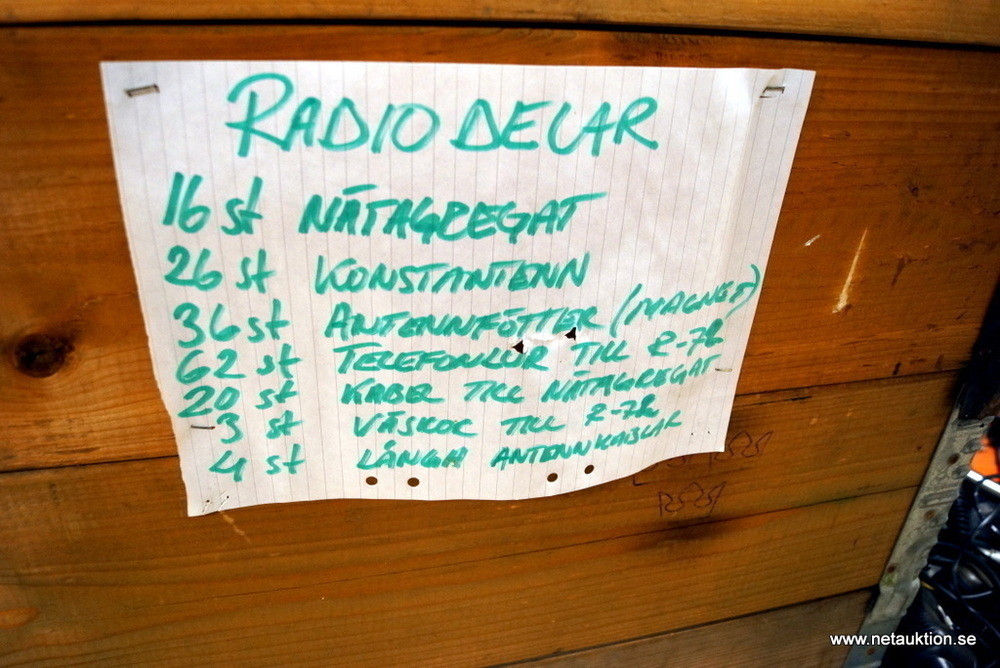 RADIO DELAR
16 st NÄTAGREGAT
26 st KONSTANTENN
36 st ANTENNFÖTTER (MAGNET)
62 st TELEFONLUR TILL R-78
20 st KABEL TILL NÄTAGREGAT
3 st VÄSKOR TILL R-78
4 st LÅNGA ANTENNKABLAR
www.netauktion.se